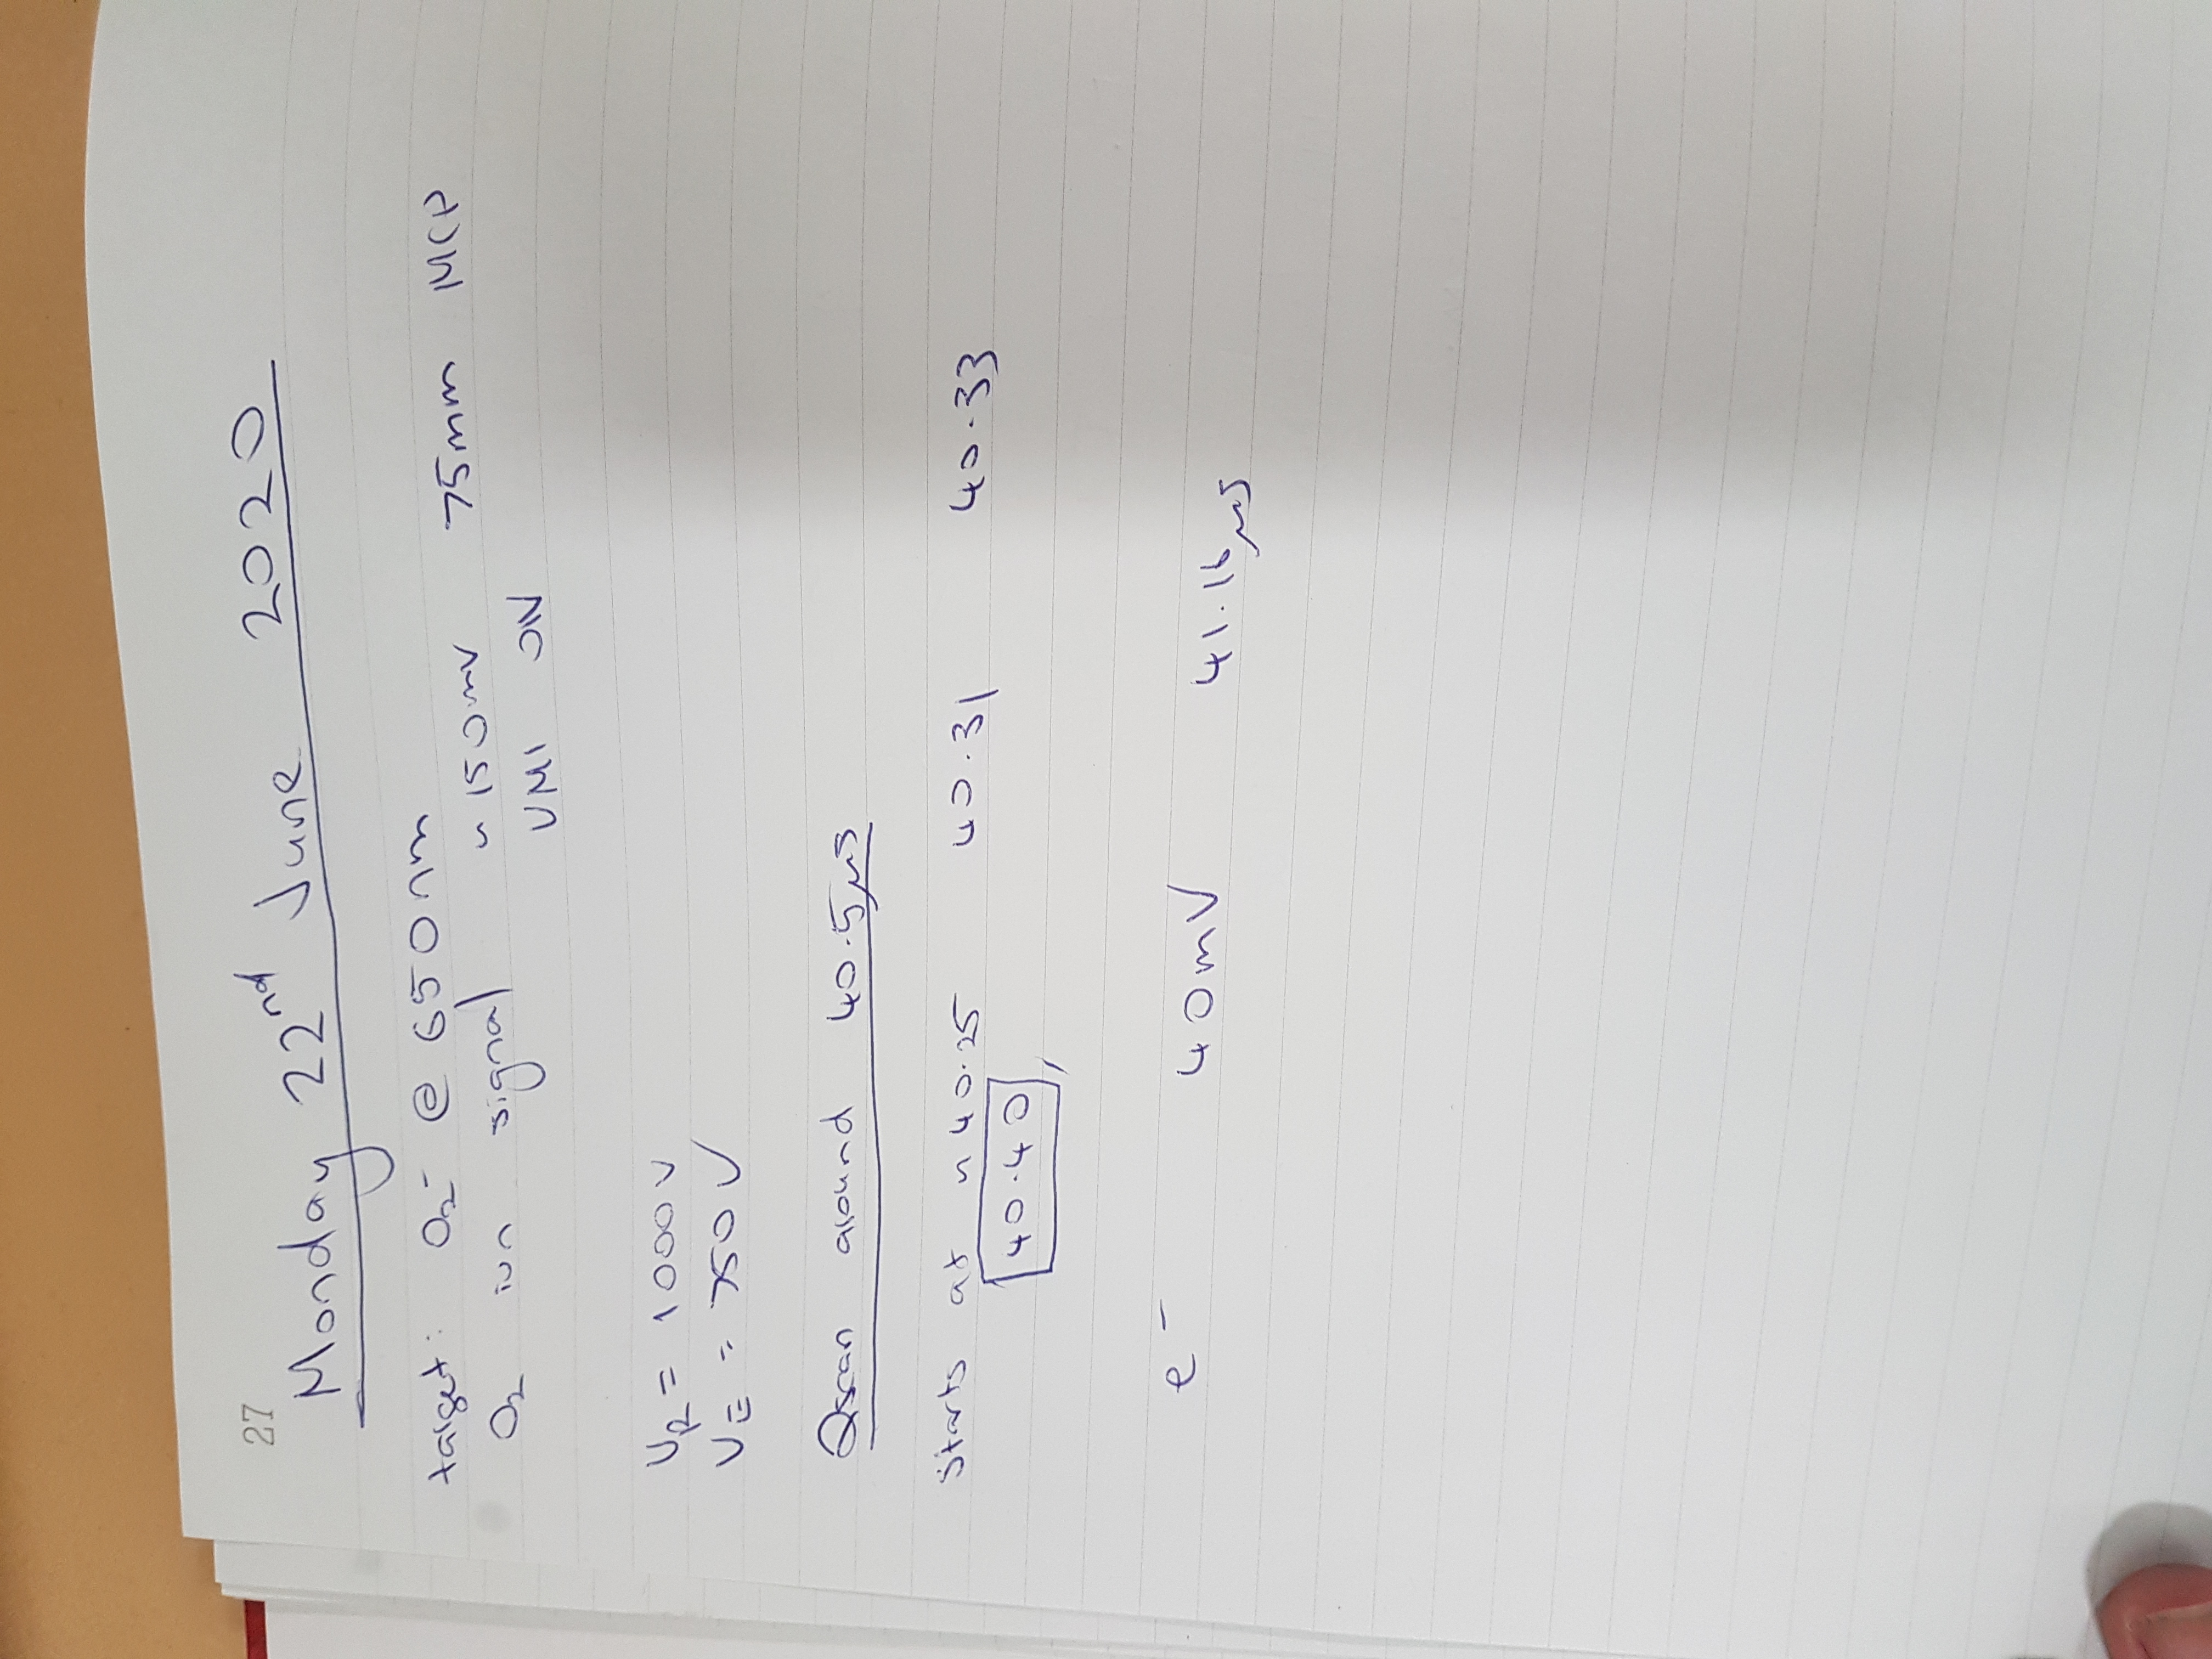 27
Monday 22nd June 2020
target: O2- @ 650nm
O2 ion signal ~150mV 75mm MCP
VMI ON
VR = 1000V
VE = 750V
Qscan around 40.5μs
starts at ~40.25 40.31 40.33
40.40,
e- 40mV 41.16μs